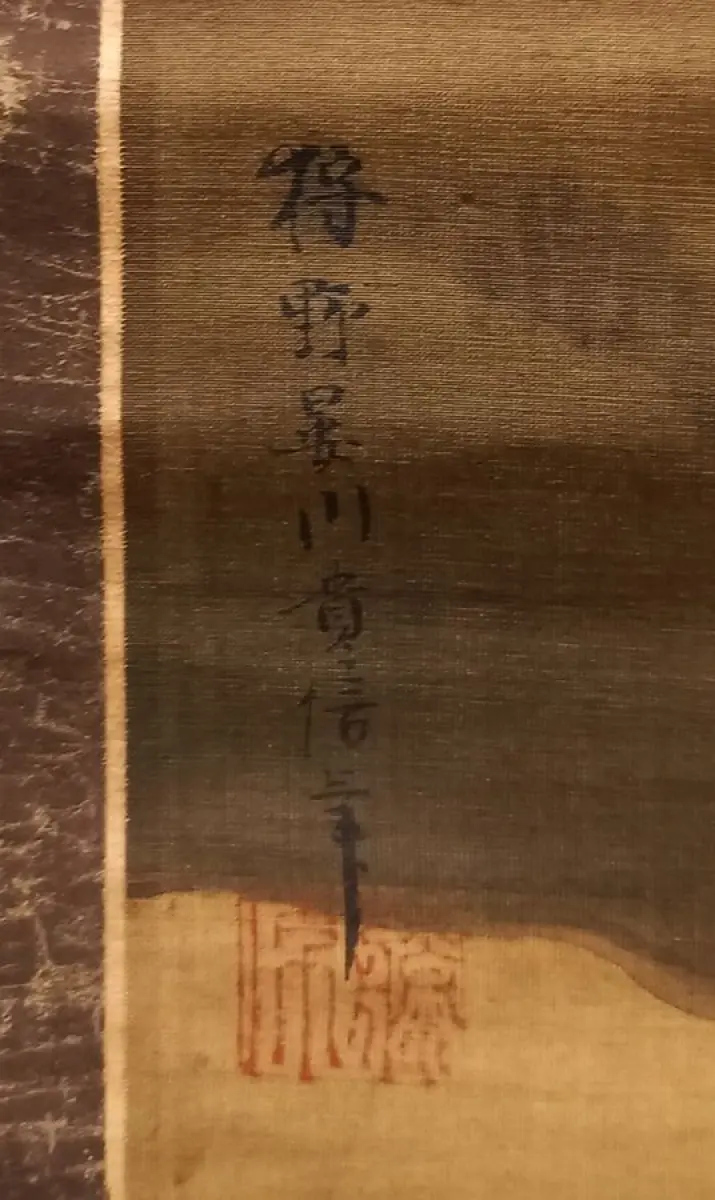 狩野晏川貴信筆